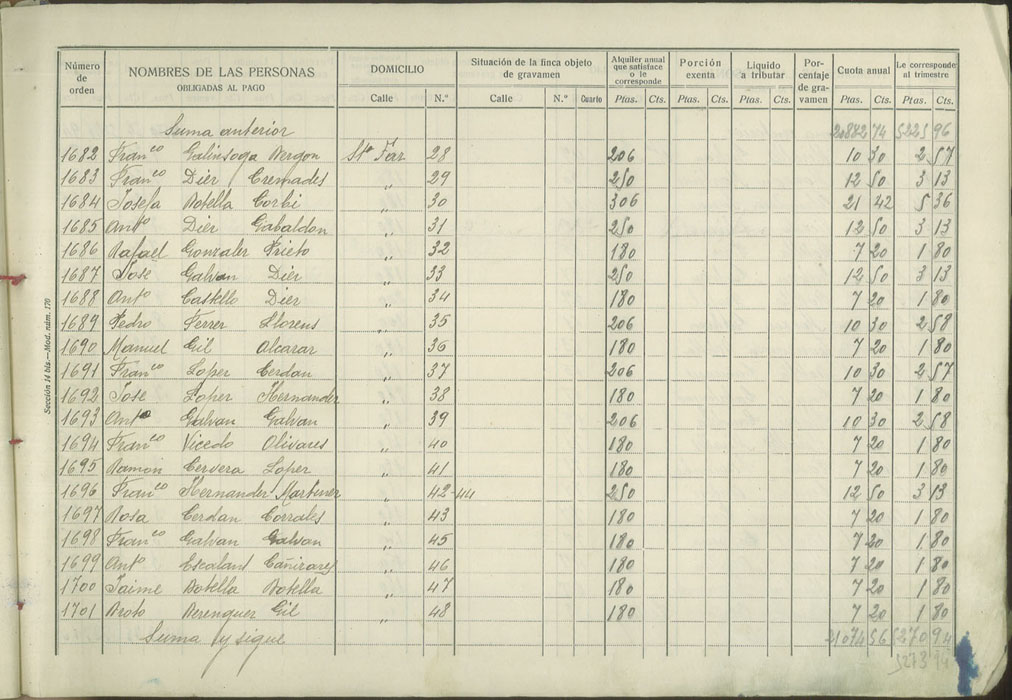 Número de orden NOMBRES DE LAS PERSONAS OBLIGADAS AL PAGO DOMICILIO Situación de la finca objeto de gravamen Alquiler anual que satisface o le corresponde Porción exenta Líquido a tributar Por-centaje de gra-vamen Cuota anual Le corresponde al trimestre
Calle N.º Calle N.º Cuarto Ptas. Cts. Ptas. Cts. Ptas. Cts. Ptas. Cts. Ptas. Cts.
Suma anterior 20882 74 5225 96
1682 Franco Galinsoga Vergon Sta Faz 28 206 10 30 2 57
1683 Franco Dier Cremades " 29 250 12 50 3 13
1684 Josefa Botella Corbi " 30 306 21 42 5 36
1685 Anto Dier Gabaldon " 31 250 12 50 3 13
1686 Rafael Gonzaler Prieto " 32 180 7 20 1 80
1687 Jose Galvan Dier " 33 250 12 50 3 13
1688 Anto Castello Dier " 34 180 7 20 1 80
1689 Pedro Ferrer Llorens " 35 206 10 30 2 58
1690 Manuel Gil Alcarar " 36 180 7 20 1 80
1691 Franco Loper Cerdan " 37 206 10 30 2 57
1692 Jose Loper Hernander " 38 180 7 20 1 80
1693 Anto Galvan Galvan " 39 206 10 30 2 58
1694 Franco Vicedo Olivares " 40 180 7 20 1 80
1695 Ramon Cervera Loper " 41 180 7 20 1 80
1696 Franco Hernander Martiner " 42-44 250 12 50 3 13
1697 Rosa Cerdan Corrales " 43 180 7 20 1 80
1698 Franco Galvan Galvan " 45 180 7 20 1 80
1699 Anto Escalant Cañirares " 46 180 7 20 1 80
1700 Jaime Botella Botella " 47 180 7 20 1 80
1701 Berenguer Gil " 48 180 7 20 1 80
Suma y sigue 21074 56 5270 94
5273 94
Sección 14 bis.—Mod. núm. 170